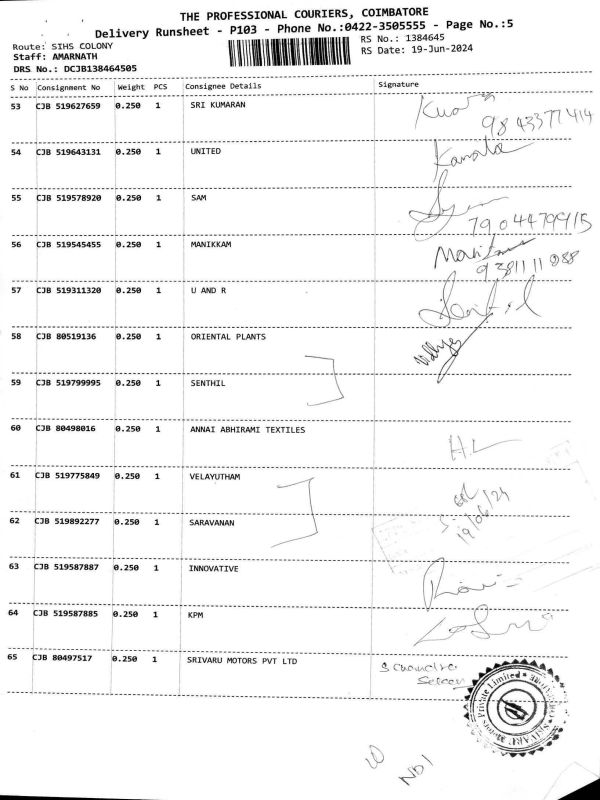 THE PROFESSIONAL COURIERS, COIMBATORE
Delivery Runsheet - P103 - Phone No.:0422-3505555 - Page No.:5
Route: SIHS COLONY
RS No.: 1384645
Staff: AMARNATH
RS Date: 19-Jun-2024
DRS No.: DCJB138464505
S No Consignment No Weight PCS Consignee Details Signature
53 CJB 519627659 0.250 1 SRI KUMARAN
9843377414
54 CJB 519643131 0.250 1 UNITED
55 CJB 519578920 0.250 1 SAM
7904479915
56 CJB 519545455 0.250 1 MANIKKAM
57 CJB 519311320 0.250 1 U AND R
58 CJB 80519136 0.250 1 ORIENTAL PLANTS
59 CJB 519799995 0.250 1 SENTHIL
60 CJB 80498016 0.250 1 ANNAI ABHIRAMI TEXTILES
61 CJB 519775849 0.250 1 VELAYUTHAM
19/06/24
62 CJB 519892277 0.250 1 SARAVANAN
63 CJB 519587887 0.250 1 INNOVATIVE
64 CJB 519587885 0.250 1 KPM
65 CJB 80497517 0.250 1 SRIVARU MOTORS PVT LTD
SRIVARU Motors Private Limited